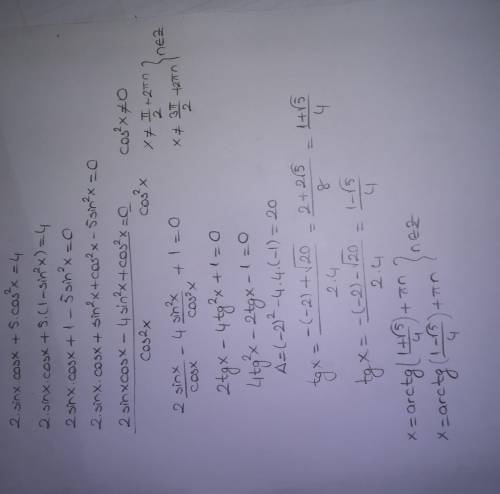 2.sinx.cosx + 5.cos²x = 4
2.sinx.cosx + 5.(1-sin²x) = 4
2sinx.cosx + 1 - 5sin²x = 0
2.sinx.cosx + sin²x + cos²x - 5sin²x = 0
2sinxcosx - 4sin²x + cos²x = 0
cos²x
cos²x
cos²x ≠ 0
x ≠ π/2 + 2πn
x ≠ 3π/2 + 2πn } n∈Z
2 sinx/cosx - 4 sin²x/cos²x + 1 = 0
2tgx - 4tg²x + 1 = 0
4tg²x - 2tgx - 1 = 0
Δ = (-2)² - 4.4.(-1) = 20
tgx = -(-2)+√20 / 2.4 = 2+2√5 / 8 = 1+√5 / 4
tgx = -(-2)-√20 / 2.4 = 1-√5 / 4
x = arctg(1+√5 / 4) + πn
x = arctg(1-√5 / 4) + πn } n∈Z